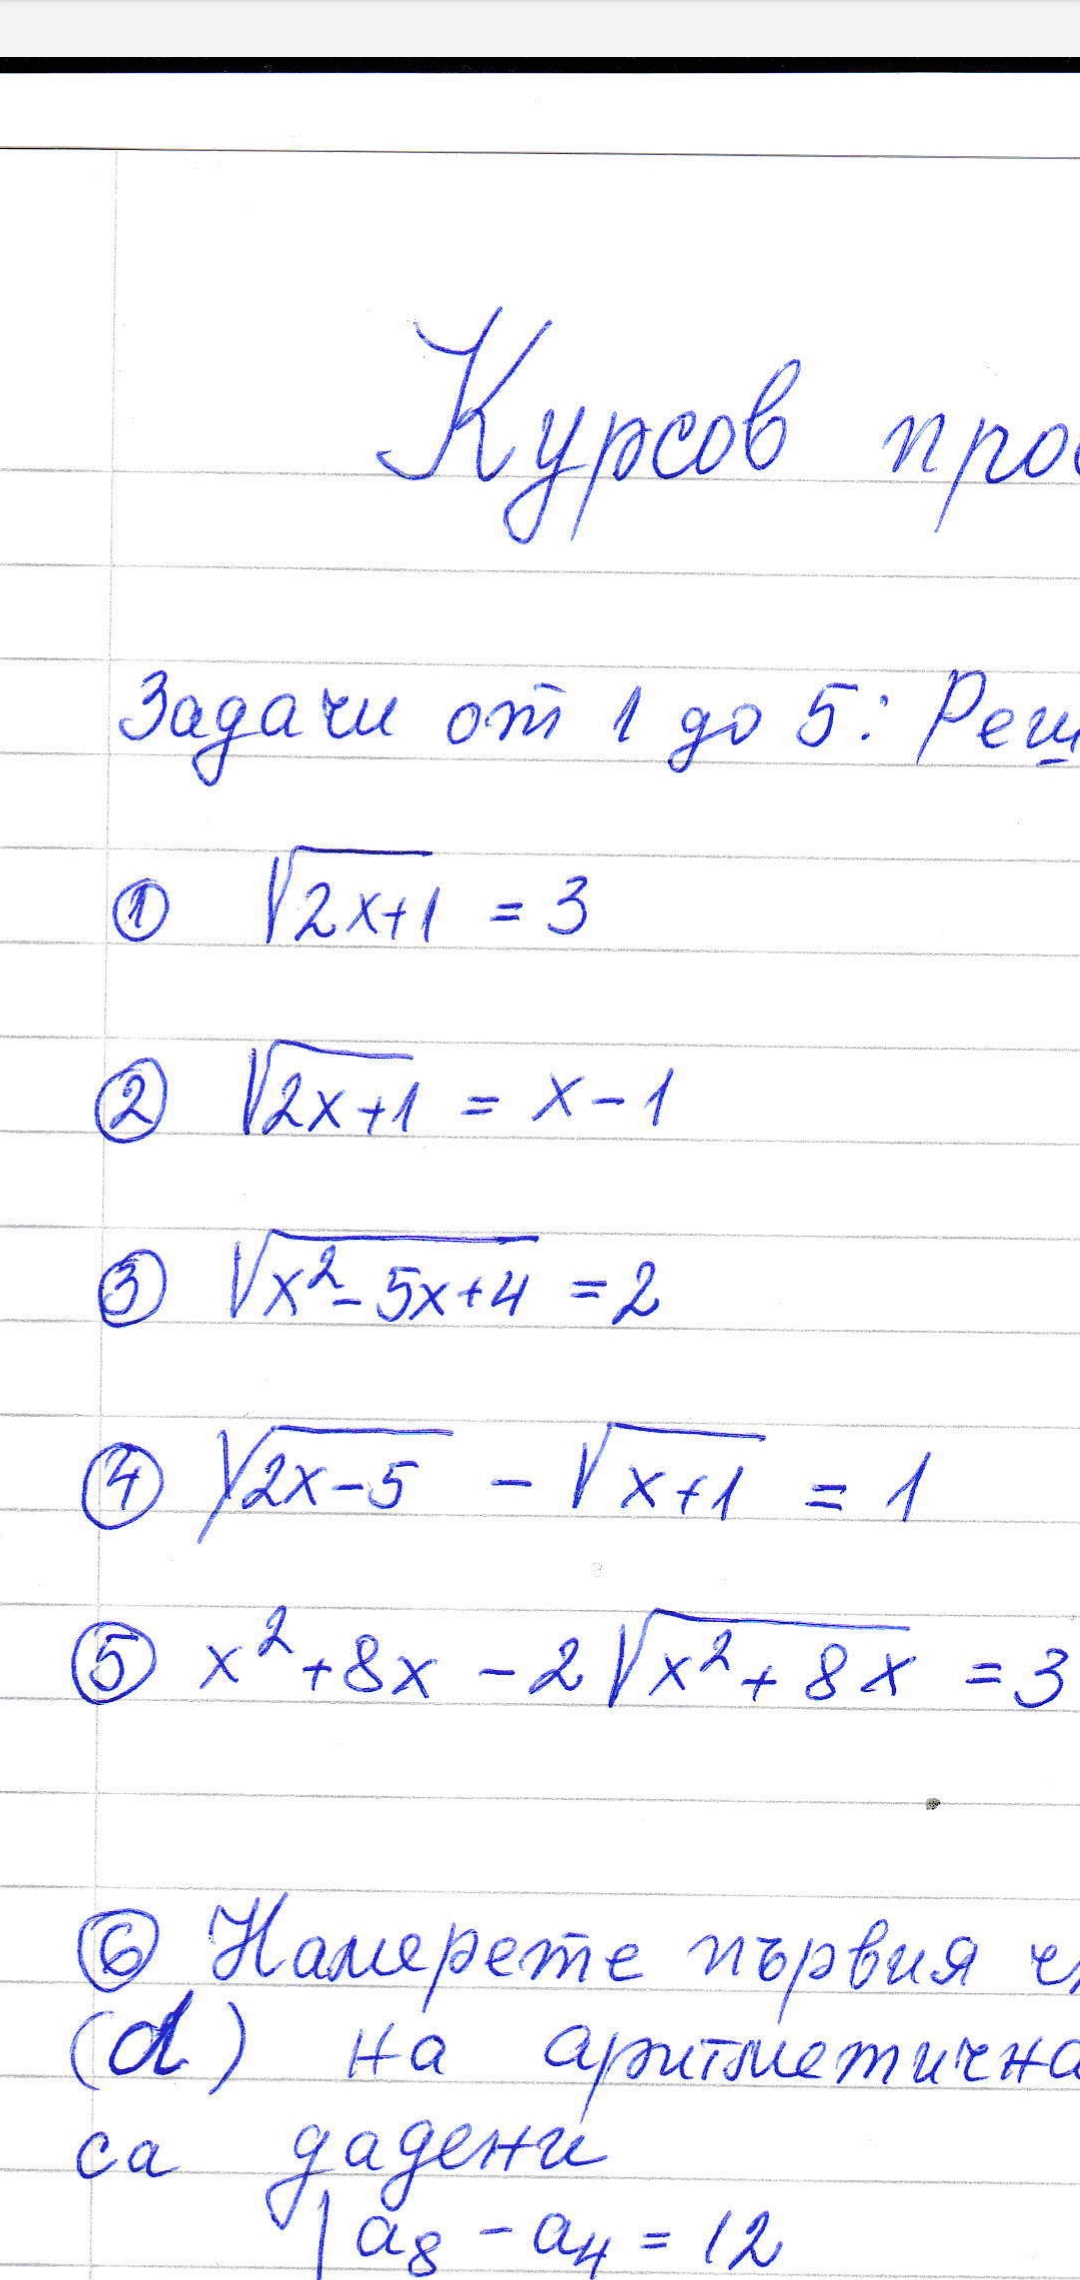 Курсов прое
Задачи от 1 до 5: Реш
① √2x+1 = 3
② √2x+1 = x-1
③ √x²-5x+4 = 2
④ √2x-5 - √x+1 = 1
⑤ x²+8x - 2√x²+8x = 3
⑥ Намерете първия чл
(d) на аритметична
са дадени
| a₈ - a₄ = 12